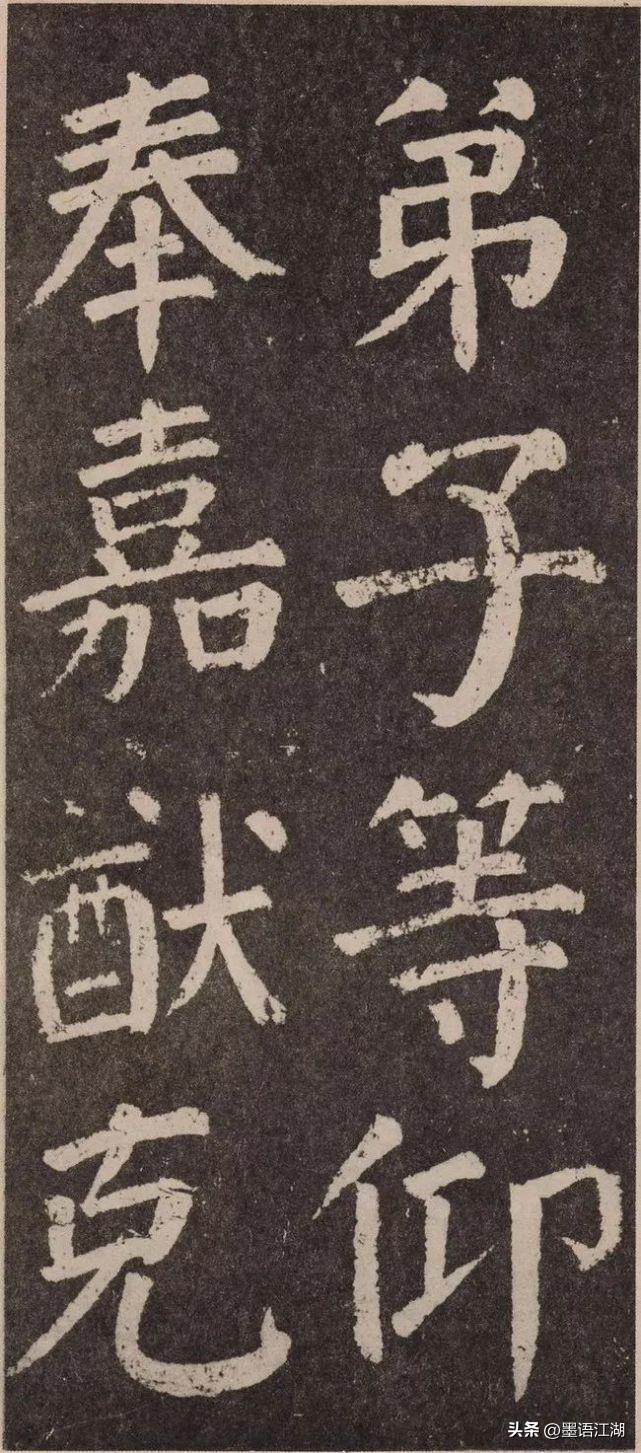 弟子等仰
奉嘉猷克
头条 @墨语江湖